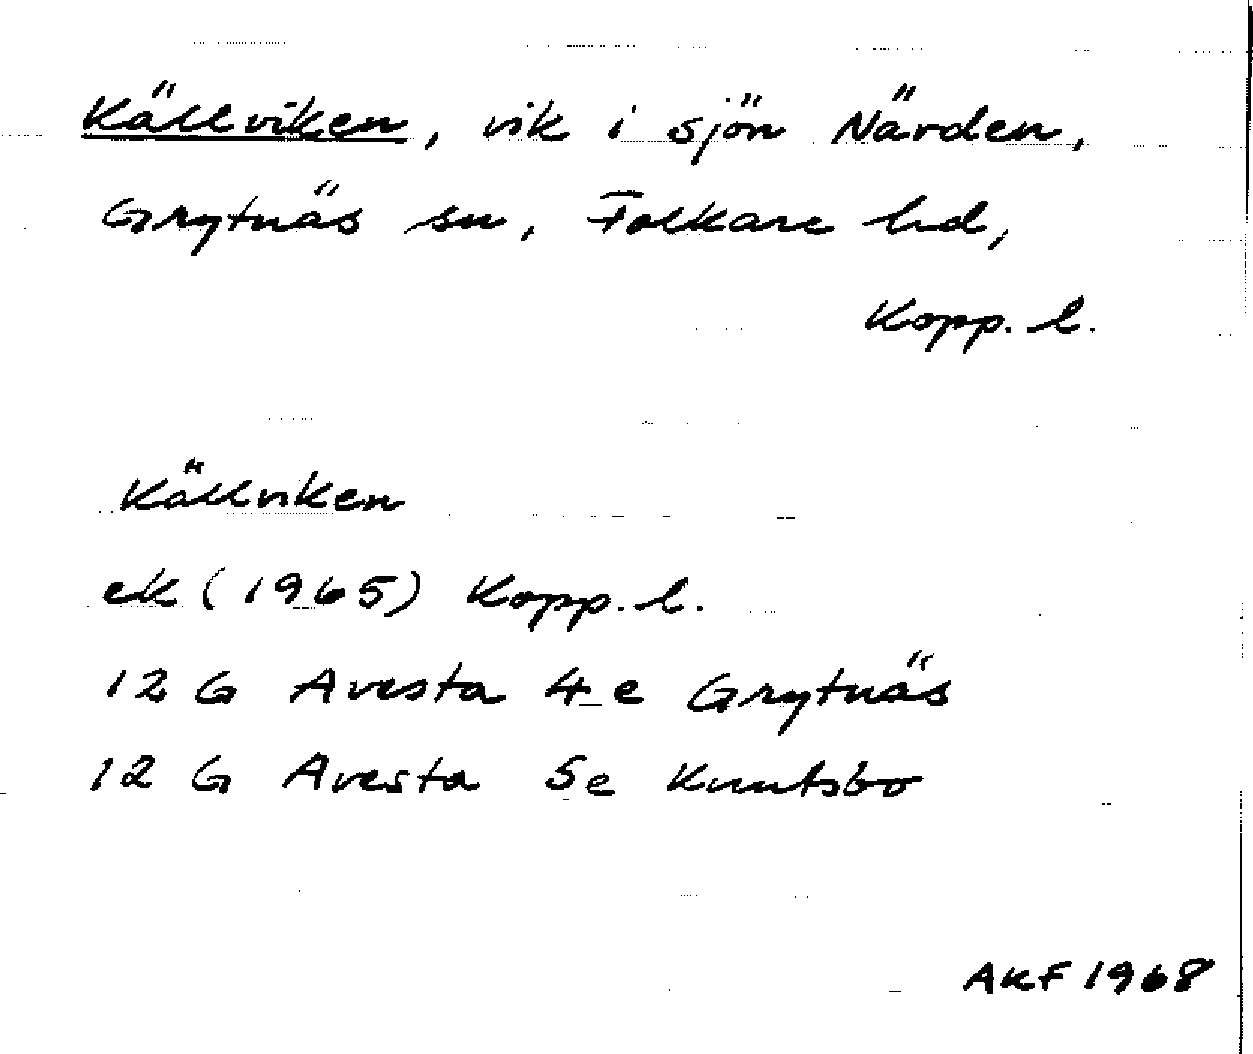 Källviken, vik i sjön Närden,
Grytnäs sn, Folkare hd,
Kopp. l.
Källviken
ek (1965) Kopp. l.
12 G Avesta 4 e Grytnäs
12 G Avesta 5e Knutsbo
AKF 1968